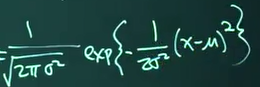 = 1/√(2πσ²) exp{-1/(2σ²) (x-μ)²}